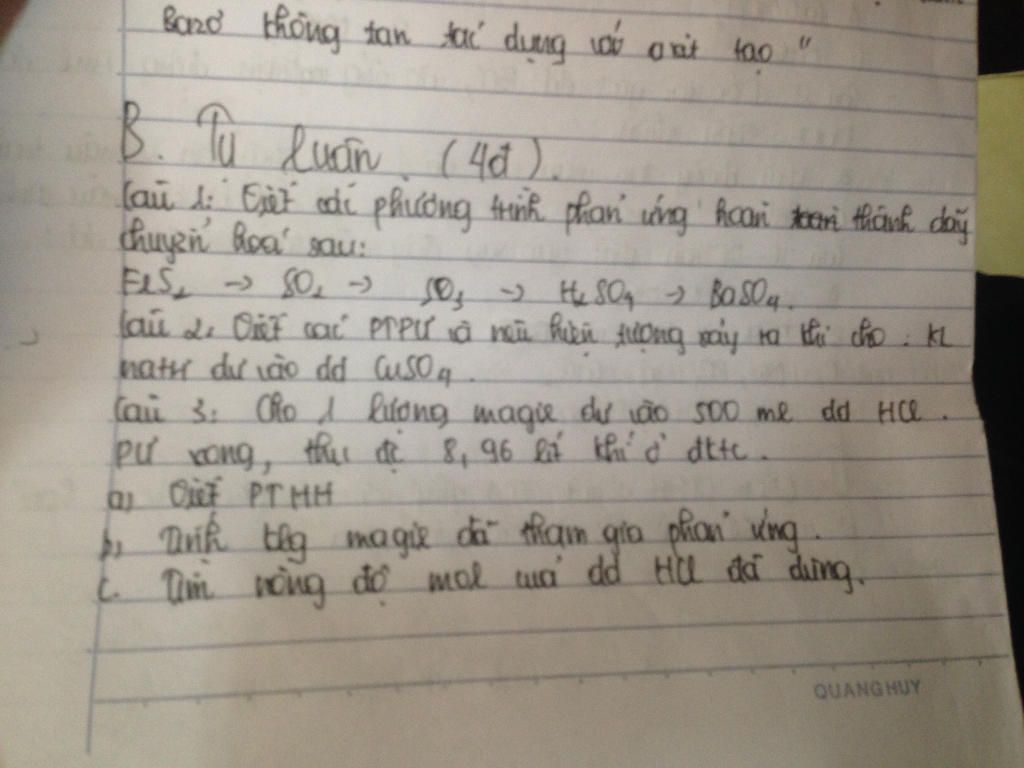 Bazơ không tan tác dụng với axit tạo "
B. Tự luận (4đ).
Câu 1: Viết các phương trình phản ứng hoàn thành dãy
chuyển hoá sau:
FeS₂ → SO₂ → SO₃ → H₂SO₄ → BaSO₄.
Câu 2: Viết các PTPƯ và nêu hiện tượng xảy ra khi cho : KL
natri dư vào dd CuSO₄.
Câu 3: Cho 1 lượng magie dư vào 500 ml dd HCl.
PƯ xong, thu đc 8,96 lít khí ở đktc.
a) Viết PTHH
b, Tính klg magie đã tham gia phản ứng.
c. Tìm nồng độ mol của dd HCl đã dùng.
QUANG HUY